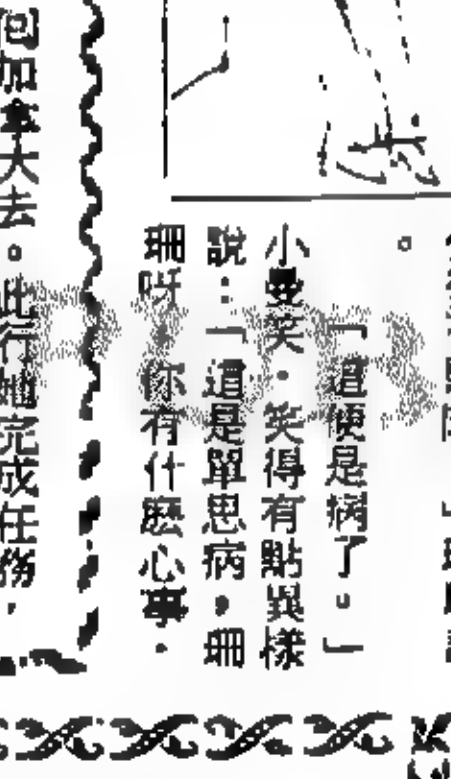 「這便是病了。」
小曼笑，笑得有點異樣
說：「這是單思病，珊
珊呀，你有什麽心事，
回加拿大去。此行她完成任務，